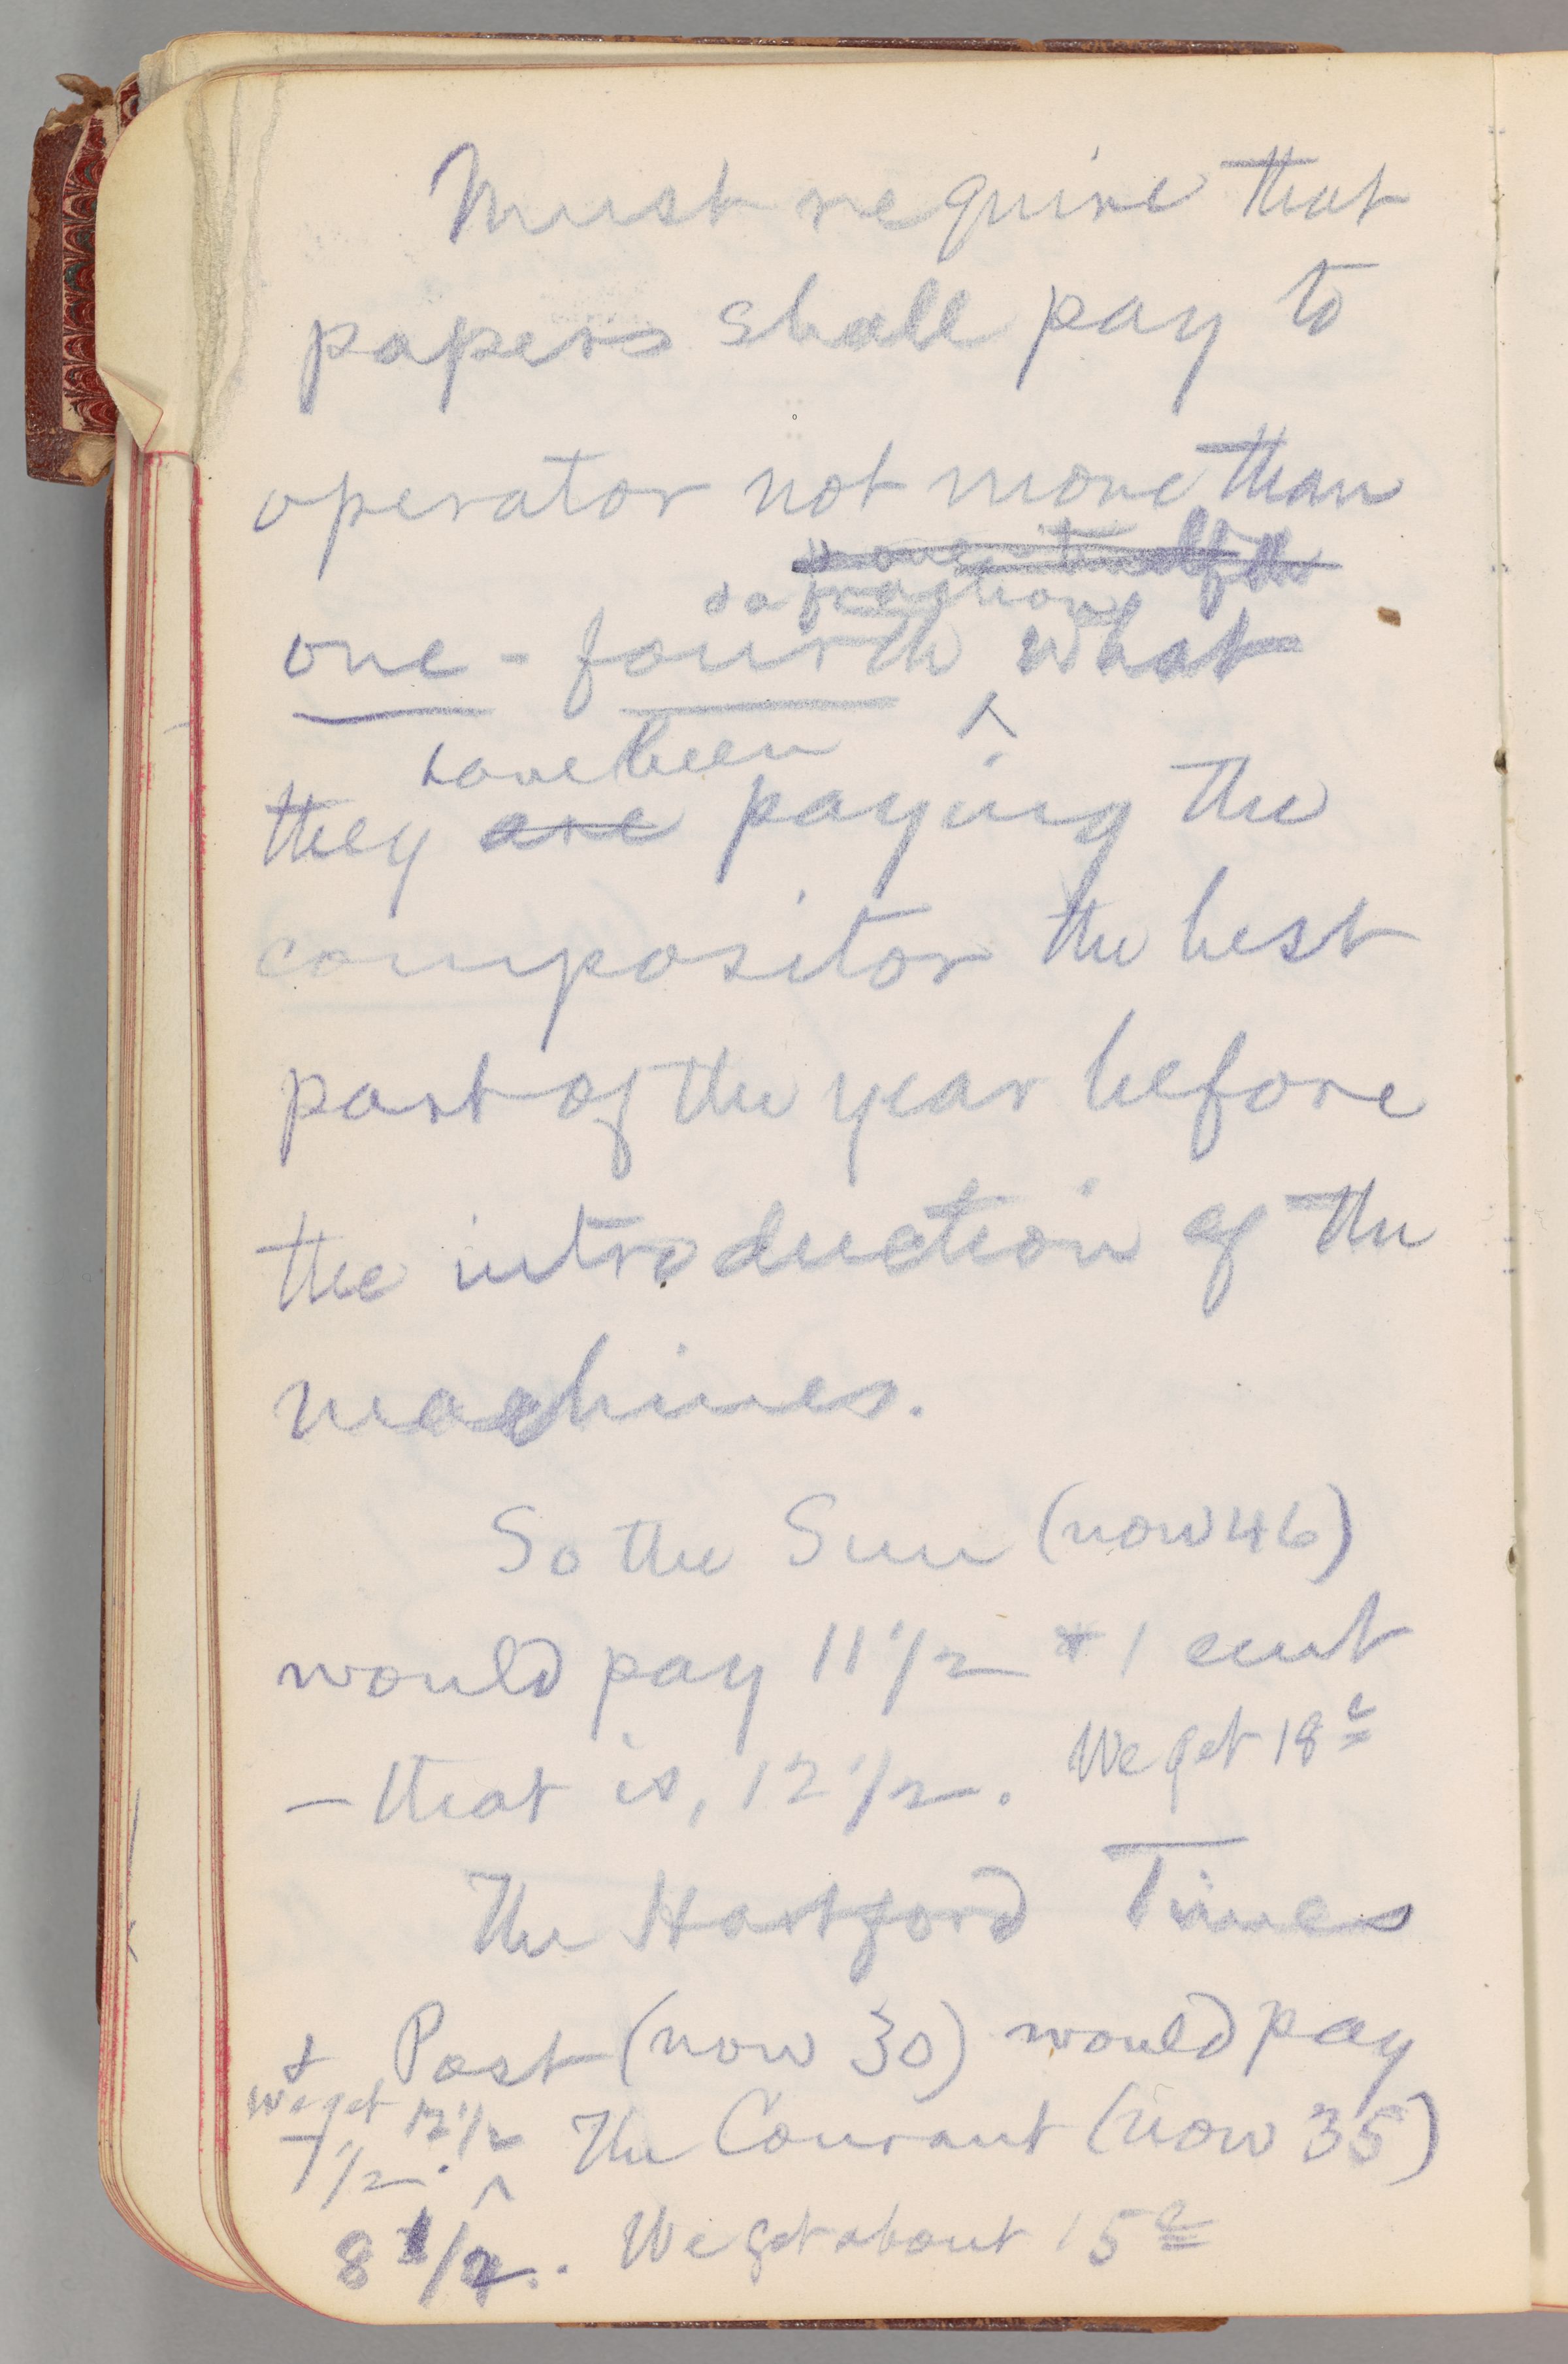 Must require that
papers shall pay to
operator not more than
one-twelfth
& a fraction
one-fourth what
have been
they are paying the
compositor the best
part of the year before
the introduction of the
machines.
So the Sun (now 46)
would pay 11 1/2 + 1 cent
— that is, 12 1/2. We get 18c
The Hartford Times
& Post (now 30) would pay
we get 12 1/2
7 1/2. The Courant (now 35)
8 1/2. We get about 15c